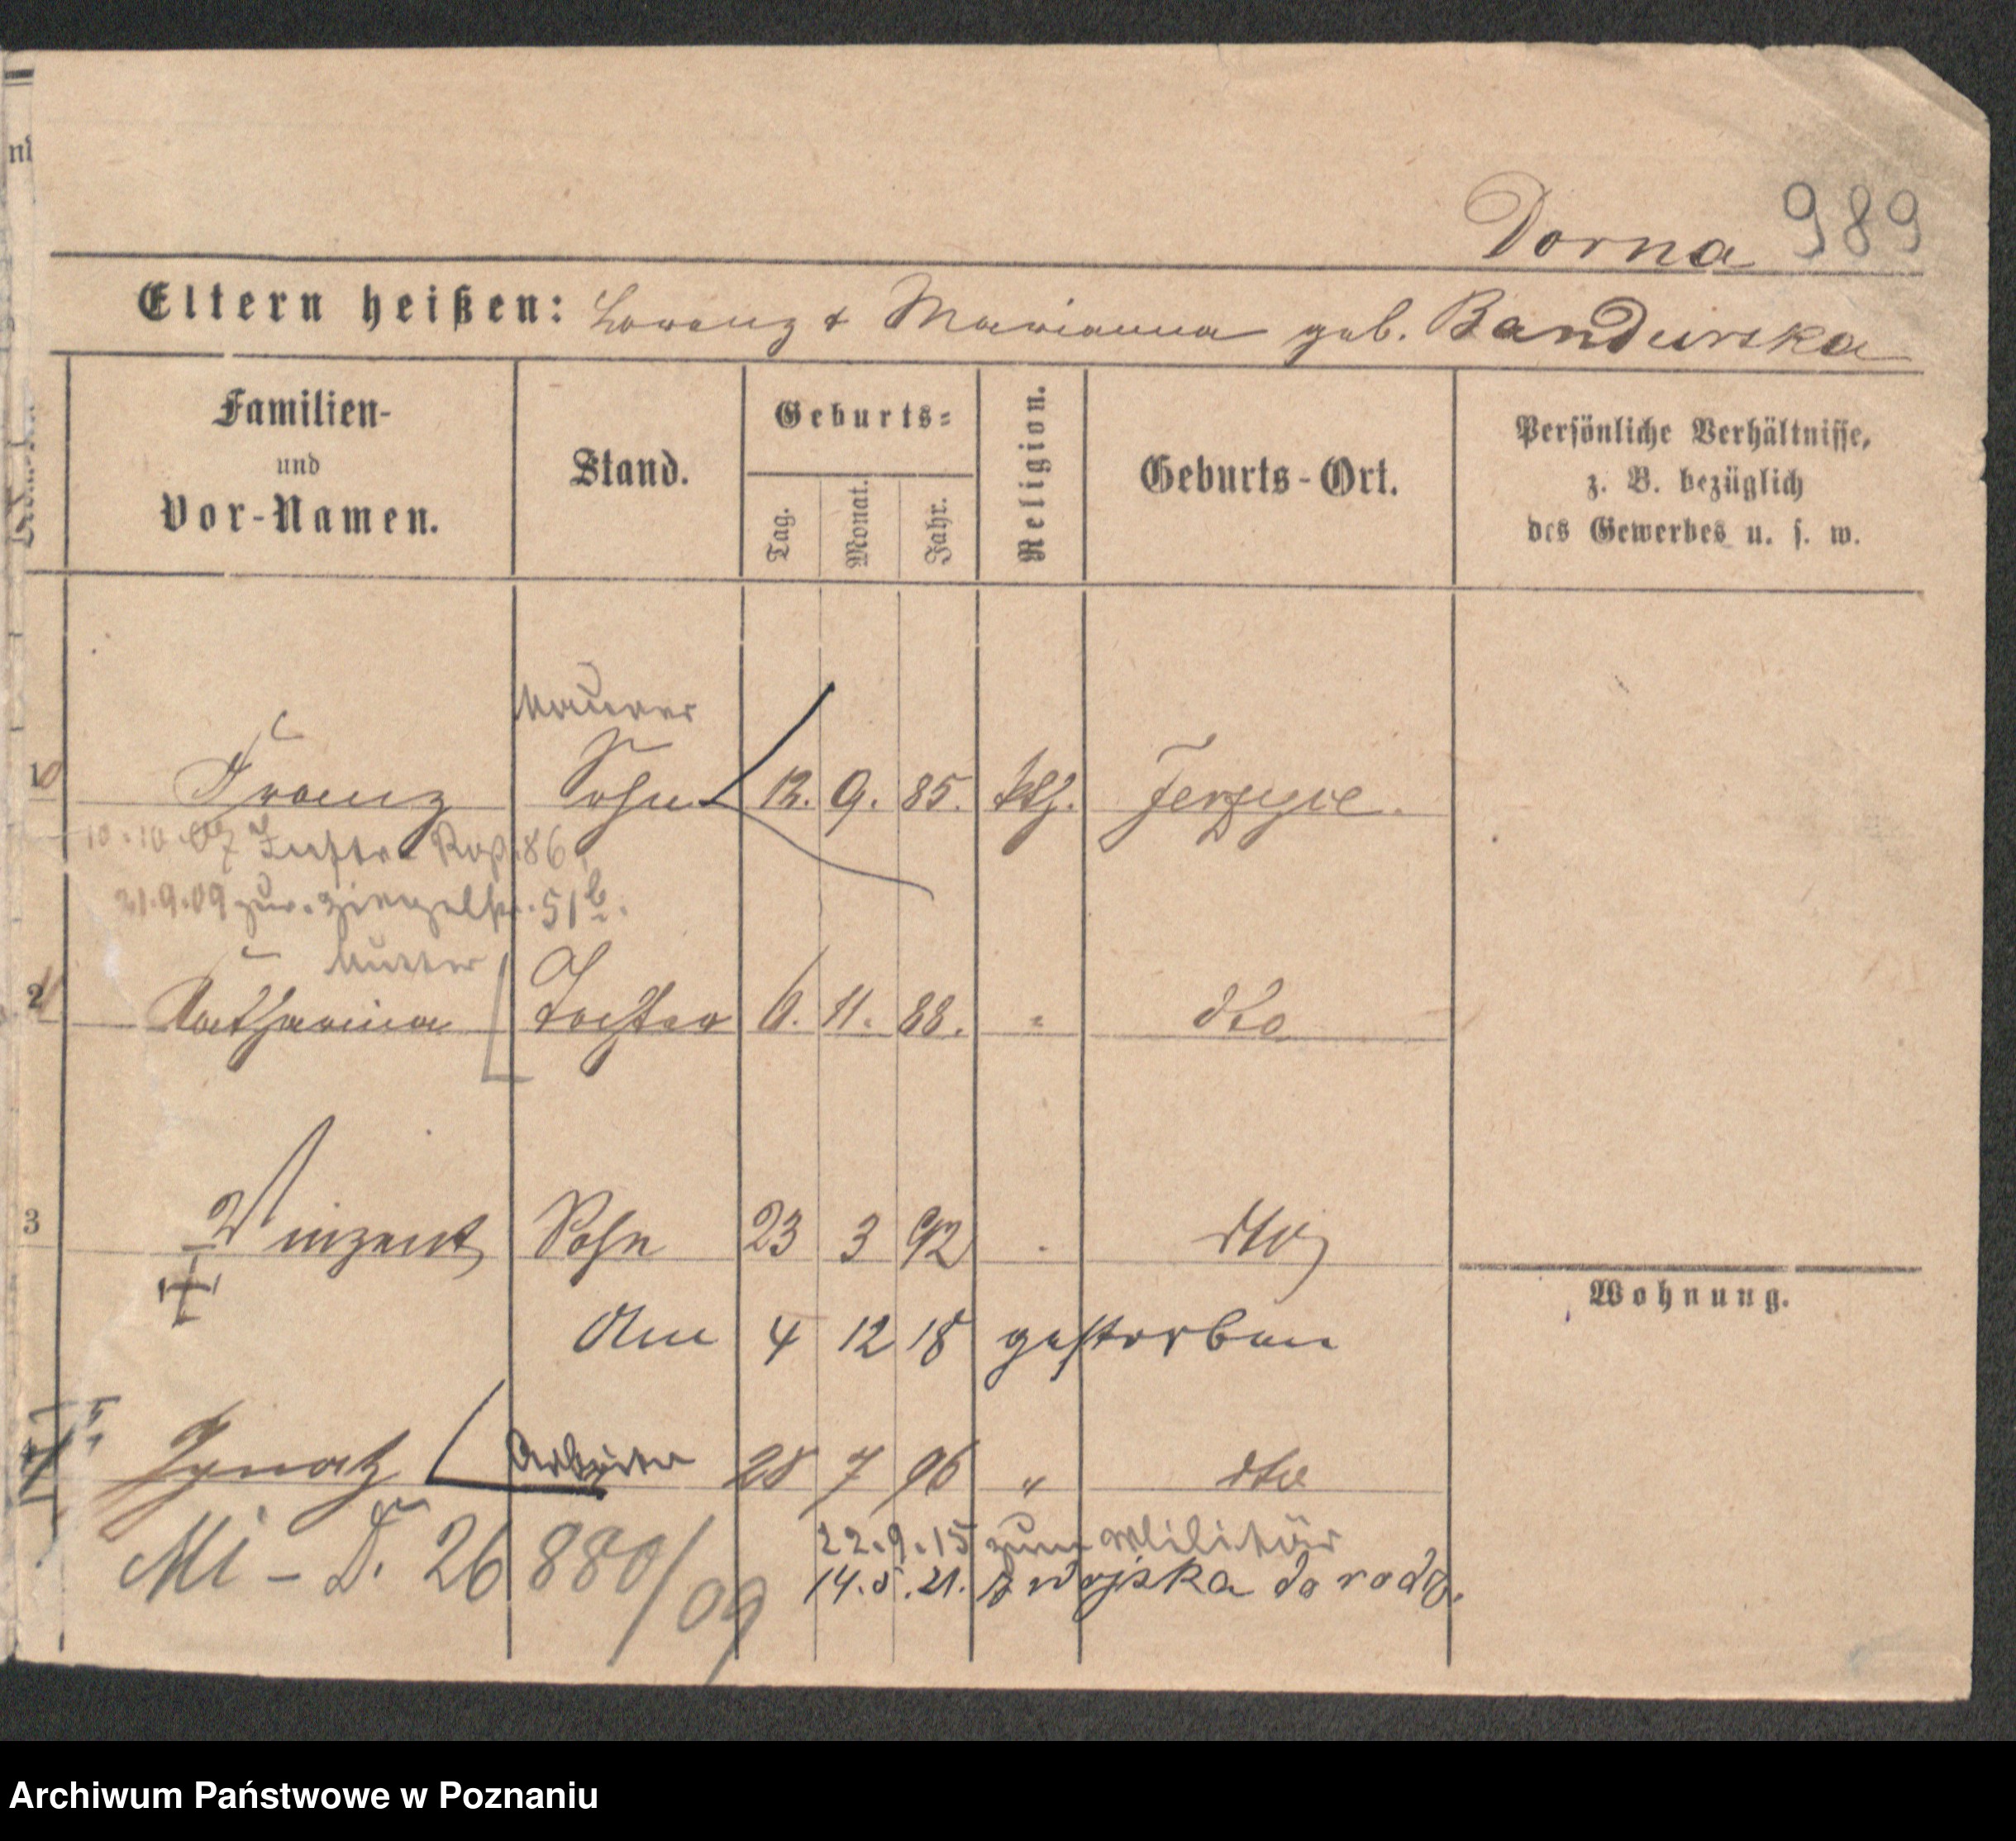 Dorna 989
Eltern heißen: Lorenz & Marianna geb. Bandurska
Familien-
und
Vor-Namen.
Stand.
Geburts=
Tag.
Monat.
Jahr.
Religion.
Geburts-Ort.
Persönliche Verhältnisse,
z. B. bezüglich
des Gewerbes u. s. w.
Maurer
1 Franz Sohn 12. 9. 85. kth. Jerzyce.
10.10.07 86
21.9.09 zur. Ziegelstr. 51b.
Mutter
2 Katharina Tochter 6. 11. 88. " dto
3 Vinzent Sohn 23 3 92 " dto
Am 4 12 18 gestorben
Ignatz Arbeiter 28 7 96 " dto
22.9.15 zum Militär
Mi-D. 26880/09 14.5.21. z wojska do rodz.
Wohnung.
Archiwum Państwowe w Poznaniu